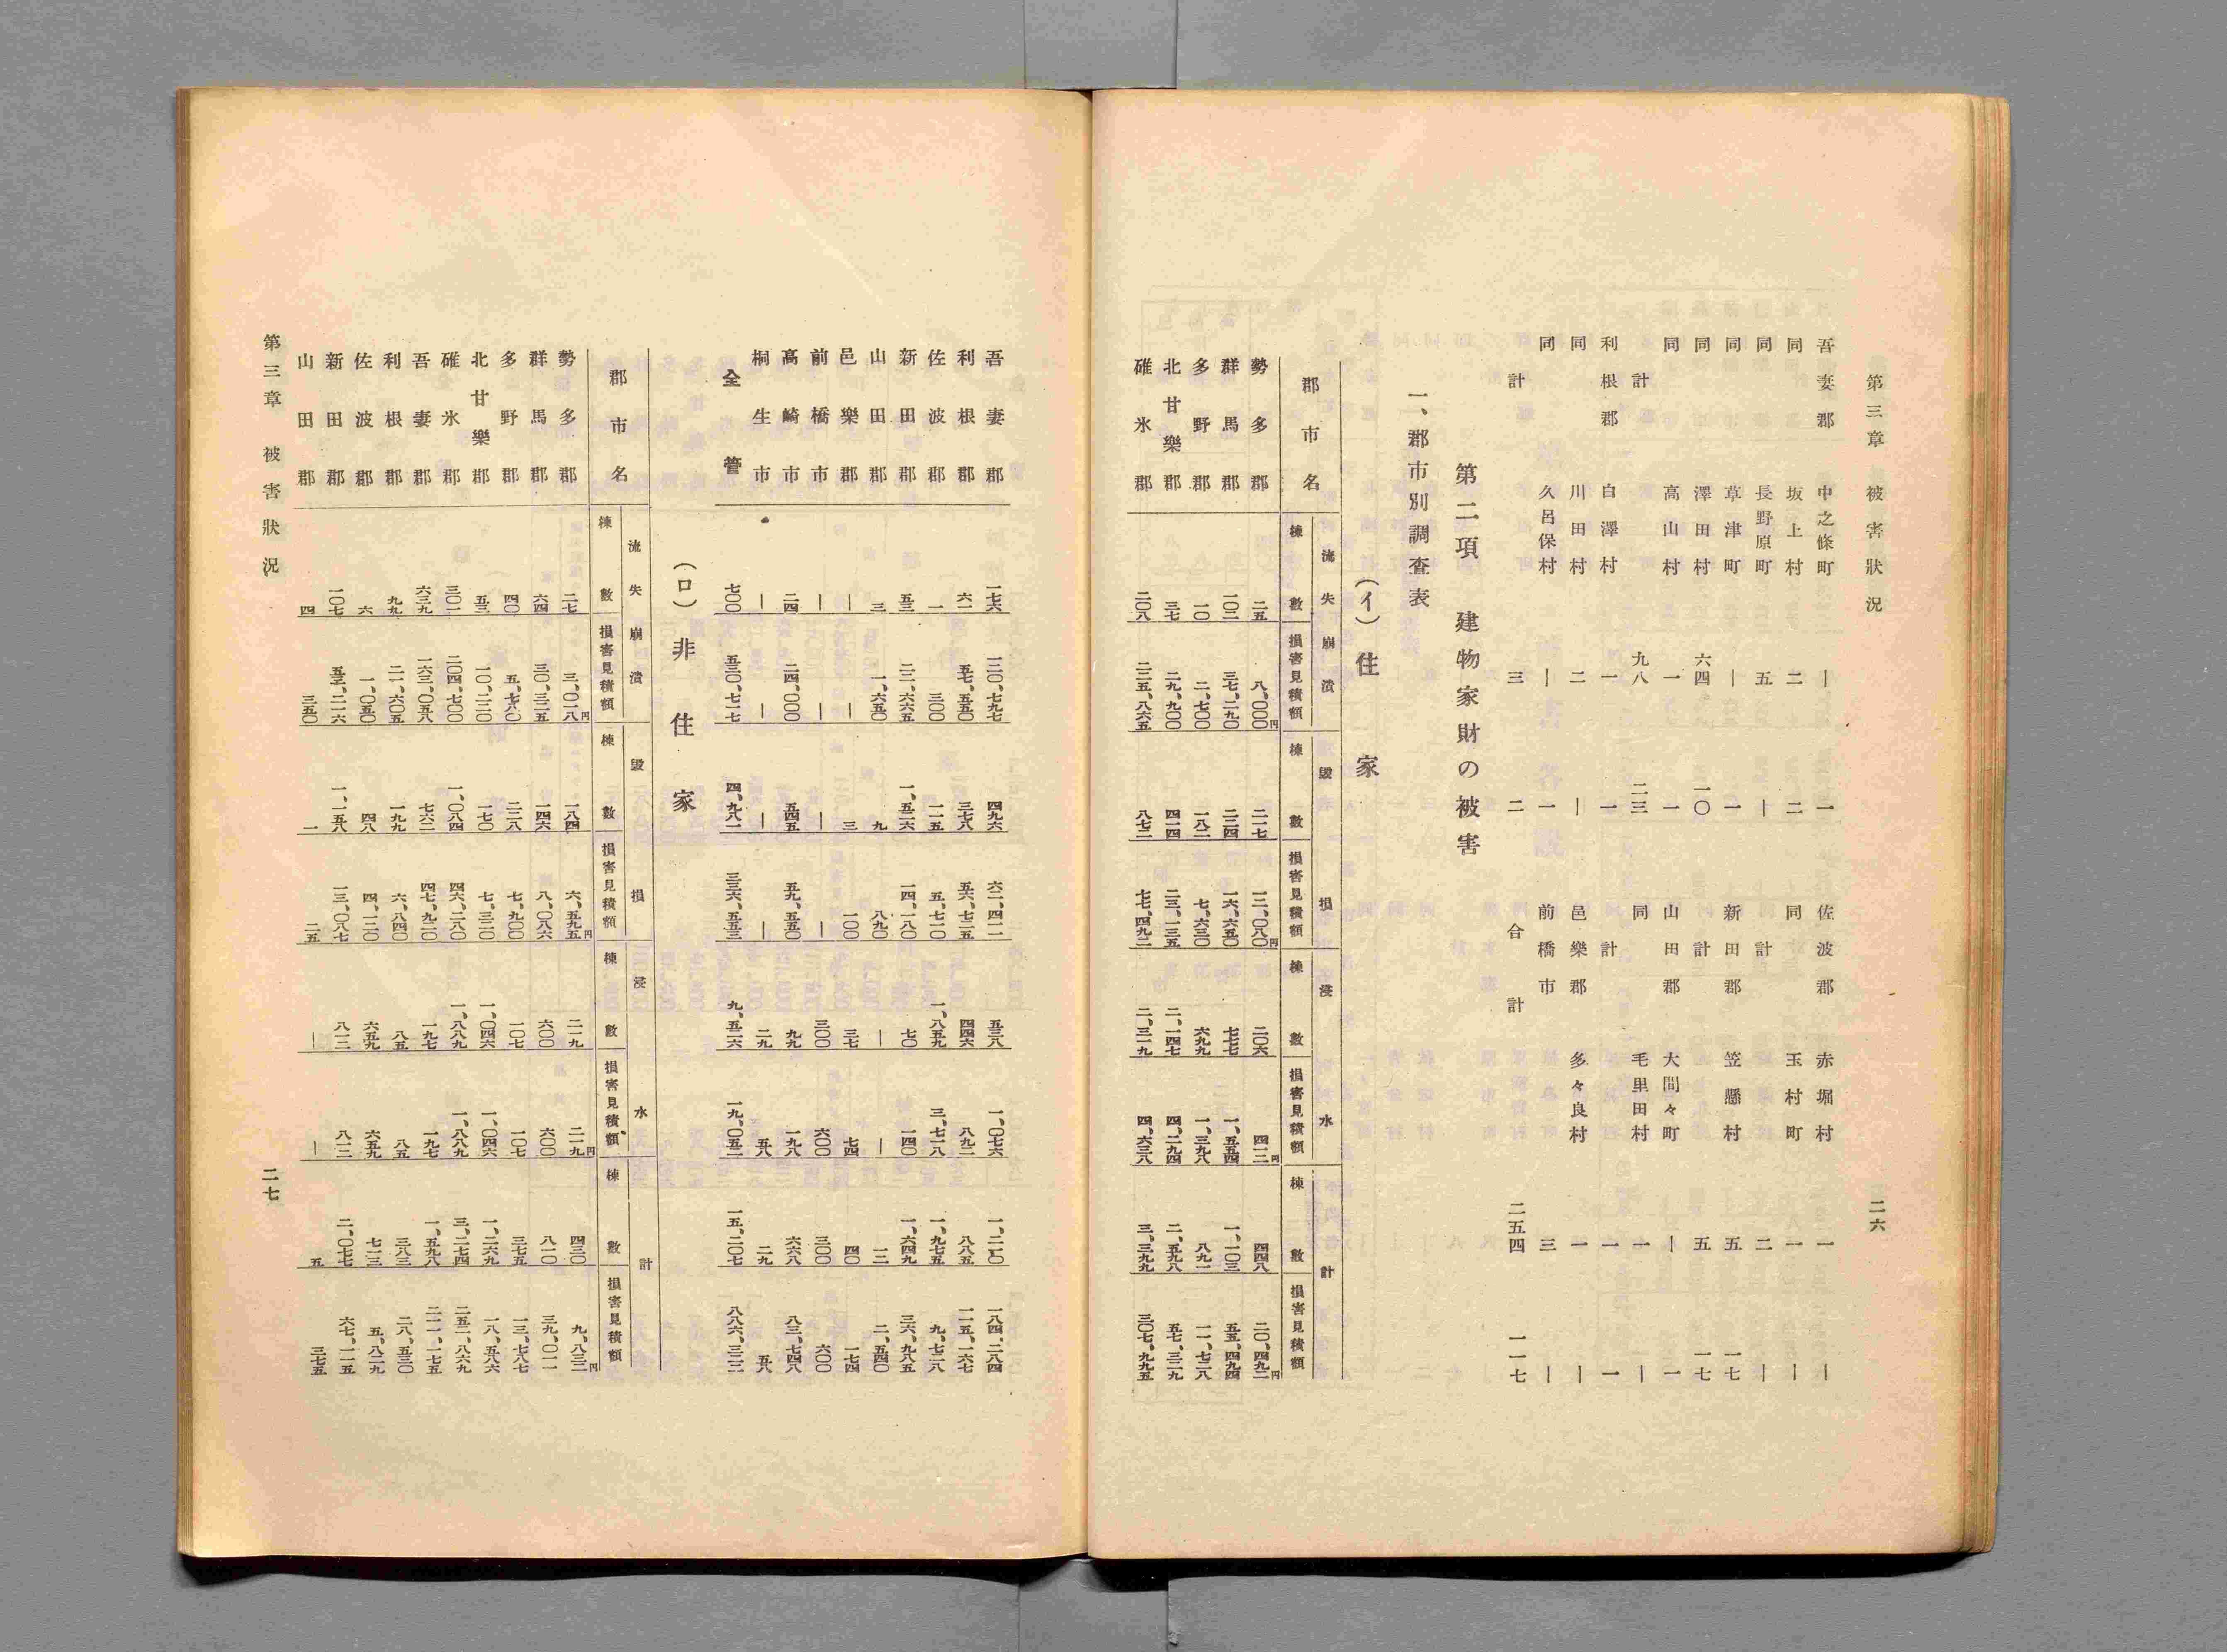 第三章 被害狀況 二六
吾妻郡 中之條町 ― 一 佐波郡 赤堀村 一 ―
同 坂上村 二 二 同 玉村町 一 ―
同 長野原町 五 ― 計 二 ―
同 草津町 ― 一 新田郡 笠懸村 五 一七
同 澤田村 六四 一〇 計 五 一七
同 高山村 一 一 山田郡 大間々町 ― 一
計 九八 二三 同 毛里田村 一 ―
利根郡 白澤村 一 一 計 一 一
同 川田村 二 ― 邑樂郡 多々良村 一 ―
同 久呂保村 ― 一 前橋市 三 ―
計 三 二 合計 二五四 一一七
第二項 建物家財の被害
一、郡市別調査表
(イ)住家
郡市名 流失崩潰 毀損 浸水 計
棟數 損害見積額 棟數 損害見積額 棟數 損害見積額 棟數 損害見積額
勢多郡 二五 八、〇〇〇円 二一七 一二、〇八〇円 二〇六 四一二円 四四八 二〇、四九二円
群馬郡 一〇二 三七、二九〇 二二四 一六、六五〇 七七七 一、五五四 一、一〇三 五五、四九四
多野郡 一〇 二、七〇〇 一八二 七、六三〇 六九九 一、三九八 八九一 一一、七二八
北甘樂郡 三七 二九、九〇〇 四一四 二三、一三五 二、一四七 四、二九四 二、五九八 五七、三二九
碓氷郡 二〇八 二二五、八六五 八七二 七七、四九二 二、三一九 四、六三八 三、三九九 三〇七、九九五
吾妻郡 一七六 一二〇、七九七 四九六 六二、四一一 五三八 一、〇七六 一、二一〇 一八四、二八四
利根郡 六一 五七、五五〇 三七八 五六、七二五 四四六 八九二 八八五 一一五、一六七
佐波郡 一 三〇〇 一一五 五、七一〇 一、八五九 三、七一八 一、九七五 九、七二八
新田郡 五三 二二、六六五 一、五二六 一四、一八〇 七〇 一四〇 一、六四九 三六、九八五
山田郡 三 一、六五〇 九 八九〇 ― ― 一二 二、五四〇
邑樂郡 ― ― 三 一〇〇 三七 七四 四〇 一七四
前橋市 ― ― ― ― 三〇〇 六〇〇 三〇〇 六〇〇
高崎市 二四 二四、〇〇〇 五四五 五九、五五〇 九九 一九八 六六八 八三、七四八
桐生市 ― ― ― ― 二九 五八 二九 五八
全管 七〇〇 五三〇、七一七 四、九八一 三三六、五五三 九、五二六 一九、〇五二 一五、二〇七 八八六、三二二
(ロ)非住家
郡市名 流失崩潰 毀損 浸水 計
棟數 損害見積額 棟數 損害見積額 棟數 損害見積額 棟數 損害見積額
勢多郡 二七 三、〇一八円 一八四 六、五九五円 二一九 二一九円 四三〇 九、八三二円
群馬郡 六四 三〇、三二五 一四六 八、〇八六 六〇〇 六〇〇 八一〇 三九、〇一一
多野郡 四〇 五、七八〇 二二八 七、九〇〇 一〇七 一〇七 三七五 一三、七八七
北甘樂郡 五三 一〇、二二〇 一七〇 七、三二〇 一、〇四六 一、〇四六 一、二六九 一八、五八六
碓氷郡 三〇一 二〇四、七〇〇 一、〇八四 四六、二八〇 一、八八九 一、八八九 三、二七四 二五二、八六九
吾妻郡 六三九 一六三、〇五八 七六二 四七、九二〇 一九七 一九七 一、五九八 二一一、一七五
利根郡 九九 二一、六〇五 一九九 六、八四〇 八五 八五 三八三 二八、五三〇
佐波郡 六 一、〇五〇 四八 四、一二〇 六五九 六五九 七一三 五、八二九
新田郡 一〇七 五三、二一六 一、一五八 一三、〇八七 八一二 八一二 二、〇七七 六七、一一五
山田郡 四 三五〇 一 二五 ― ― 五 三七五
第三章 被害狀況 二七